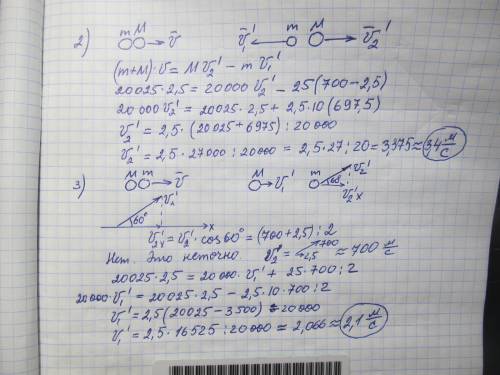 2) m M v̄ v̄₁' m M v̄₂'
(m+M)·v = Mv₂' − mv₁'
20025·2,5 = 20000v₂' − 25(700−2,5)
20000v₂' = 20025·2,5 + 2,5·10(697,5)
v₂' = 2,5·(20025+6975):20000
v₂' = 2,5·27000:20000 = 2,5·27:20 = 3,375 ≈ 3,4 м/с
3) M m v̄ M v₁' m v₂'
v₂' 60° 60° v₂'x
x
v₂'x = v₂'·cos60° = (700+2,5):2
Нет. Это неточно. v₂' = 700 2,5 ≈ 700 м/с
20025·2,5 = 20000·v₁' + 25·700:2
20000·v₁' = 20025·2,5 − 2,5·10·700:2
v₁' = 2,5(20025−3500):20000
v₁' = 2,5·16525:20000 = 2,066 ≈ 2,1 м/с